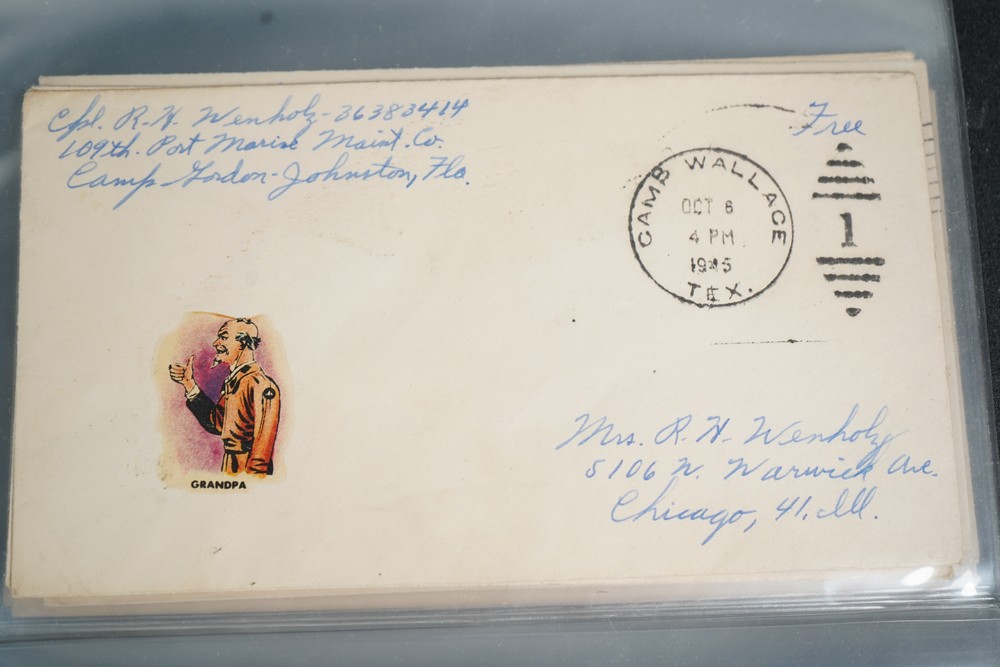 Cpl. R. H. Wenholz - 36383414
109th. Port Marine Maint. Co.
Camp Gordon-Johnston, Fla.
Free
CAMP WALLACE
OCT 6
4 PM
1945
TEX.
1
GRANDPA
Mrs. R. H. Wenholz
5106 W. Warwick Ave.
Chicago, 41. Ill.